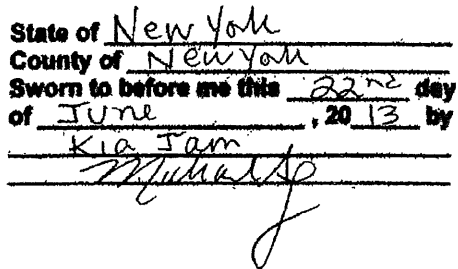 State of New York
County of New York
Sworn to before me this 22nd day
of June, 2013 by
Kia Jam